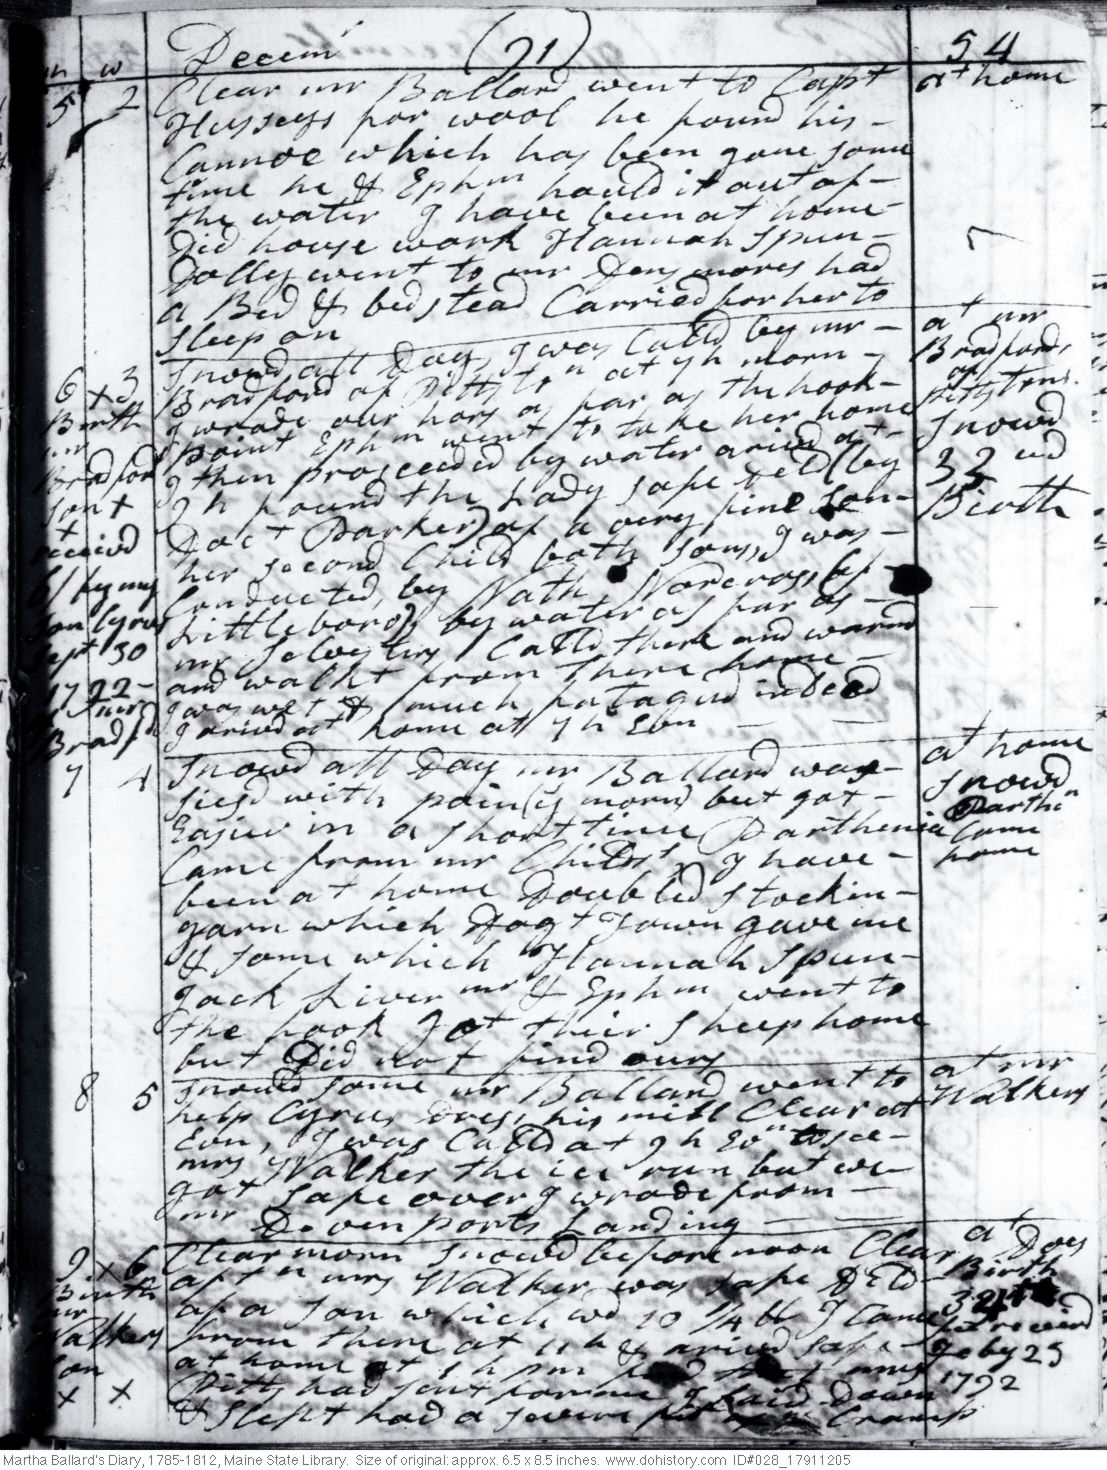 Decem (91) 54
m w
5 2 Clear mr Ballard went to Capt at home
Husseys for wool he found his
Cannoe which has been gone some
time he & Ephm hauld it out of
the water I have been at home
Did house work Hannah spun
Dolly went to mr Densmores had
a Bed & bedstead Carried for her to
sleep on
6 x 3 Snowd all Day I was Calld by mr at mr
Birth Bradford of Pittston at 7 h morn Bradfords
mr I wrode our hors as far as the hook of
Bradford Point Ephm went to take her home Pittstons
son x I then proseeded by water arivd at Snowd
x h found the Lady safe Deld (by 33
receivd Doct Parker) of a very fine son Birth
6/ by my her second Child both sons, I was
son Cyrus Conducted, by Nath Norcross (of
Sept 30 Littleboro) by water as far as
1792 mr Selvesters Calld there and warmd
Bradfd and walkt from there home
I was wet & much fatagud indeed
I arivd at home at 7 h Evn
7 4 Snowd all Day mr Ballard was at home
siesd with pain (ys morn) but got Snowd
Easier in a short time Parthenia Parthn
Came from mr Childs, I have Came
been at home Doubled stockin home
yarn which Dagt Town gave me
& some which Hannah spun
Jack Liver mr & Ephm went to
the hook Got their sheep home
but Did not find ours
8 5 Snowd some mr Ballard went to at mr
help Cyrus Dress his mill Clear at Walkers
Evn, I was Calld at 9 h Evn to see
mrs Walker the ice run but we
got safe over I wrode from
mr Devenports Landing
9 x 6 Clear morn Snowd before noon Clear at Does
Birth aftn mrs Walker was safe Deld Birth
mr of a son which wd 10 1/4 lb I Came 34th
Walkers from there at 11 h & arivd safe receivd
son at home at 1 h pm mrs by 25
x x Pitts had sent for me I Laid Down 1792
& slept had a severe fit Cramp
Martha Ballard's Diary, 1785-1812, Maine State Library. Size of original: approx. 6.5 x 8.5 inches. www.dohistory.com ID#028_17911205